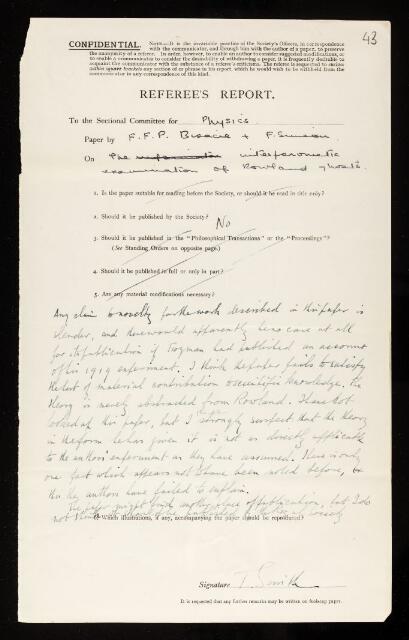 43
CONFIDENTIAL. NOTE.—It is the invariable practice of the Society's Officers, in correspondence
with the communicator, and through him with the author of a paper, to preserve
the anonymity of a referee. In order, however, to enable an author to consider suggested modifications, or
to enable a communicator to consider the desirability of withdrawing a paper, it is frequently desirable to
acquaint the communicator with the substance of a referee's criticisms. The referee is requested to enclose
within square brackets any section of or phrase in his report, which he would wish to be withheld from the
communicator in any correspondence of this kind.
REFEREE'S REPORT.
To the Sectional Committee for Physics
Paper by F. F. P. Bisacre + F. Simeon
On The interferometric
examination of Rowland ghosts.
1. Is the paper suitable for reading before the Society, or should it be read in title only?
2. Should it be published by the Society?
No
3. Should it be published in the "Philosophical Transactions" or the "Proceedings"?
(See Standing Orders on opposite page.)
4. Should it be published in full or only in part?
5. Are any material modifications necessary?
Any claim to novelty for the work described in this paper is
slender, and there would apparently be no case at all
for its publication if Twyman had published an account
of his 1919 experiment. I think the paper fails to satisfy
the test of material contribution to scientific knowledge. The
theory is merely abstracted from Rowland. I have not
looked up his paper, but I strongly suspect that the theory
in the form he has given it is not as directly applicable
to the authors' experiment as they have assumed. There is only
one fact which appears not to have been noted before,
this the authors have failed to explain.
The paper might find another place of publication, but I do
not think it should be published by the Society
6. Which illustrations, if any, accompanying the paper should be reproduced?
Signature T. Smith
It is requested that any further remarks may be written on foolscap paper.